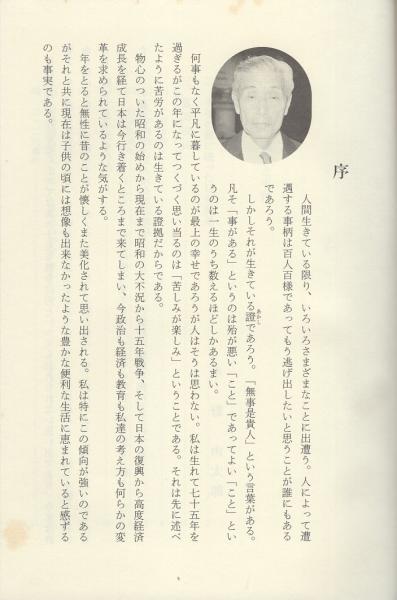 序
人間生きている限り、いろいろさまざまなことに出遭う。人によって遭
遇する事柄は百人百様であってもう逃げ出したいと思うことが誰にもある
であろう。
しかしそれが生きている證であろう。「無事是貴人」という言葉がある。
あかし
凡そ「事がある」というのは殆が悪い「こと」であってよい「こと」とい
うのは一生のうち数えるほどしかあるまい。
何事もなく平凡に暮しているのが最上の幸せであろうが人はそうは思わない。私は生れて七十五年を
過ぎるがこの年になってつくづく思い当るのは「苦しみが楽しみ」ということである。それは先に述べ
たように苦労があるのは生きている證拠だからである。
物心のついた昭和の始めから現在まで昭和の大不況から十五年戦争、そして日本の復興から高度経済
成長を経て日本は今行き着くところまで来てしまい、今政治も経済も教育も私達の考え方も何らかの変
革を求められているような気がする。
年をとると無性に昔のことが懐しくまた美化されて思い出される。私は特にこの傾向が強いのである
がそれと共に現在は子供の頃には想像も出来なかったような豊かな便利な生活に恵まれていると感ずる
のも事実である。